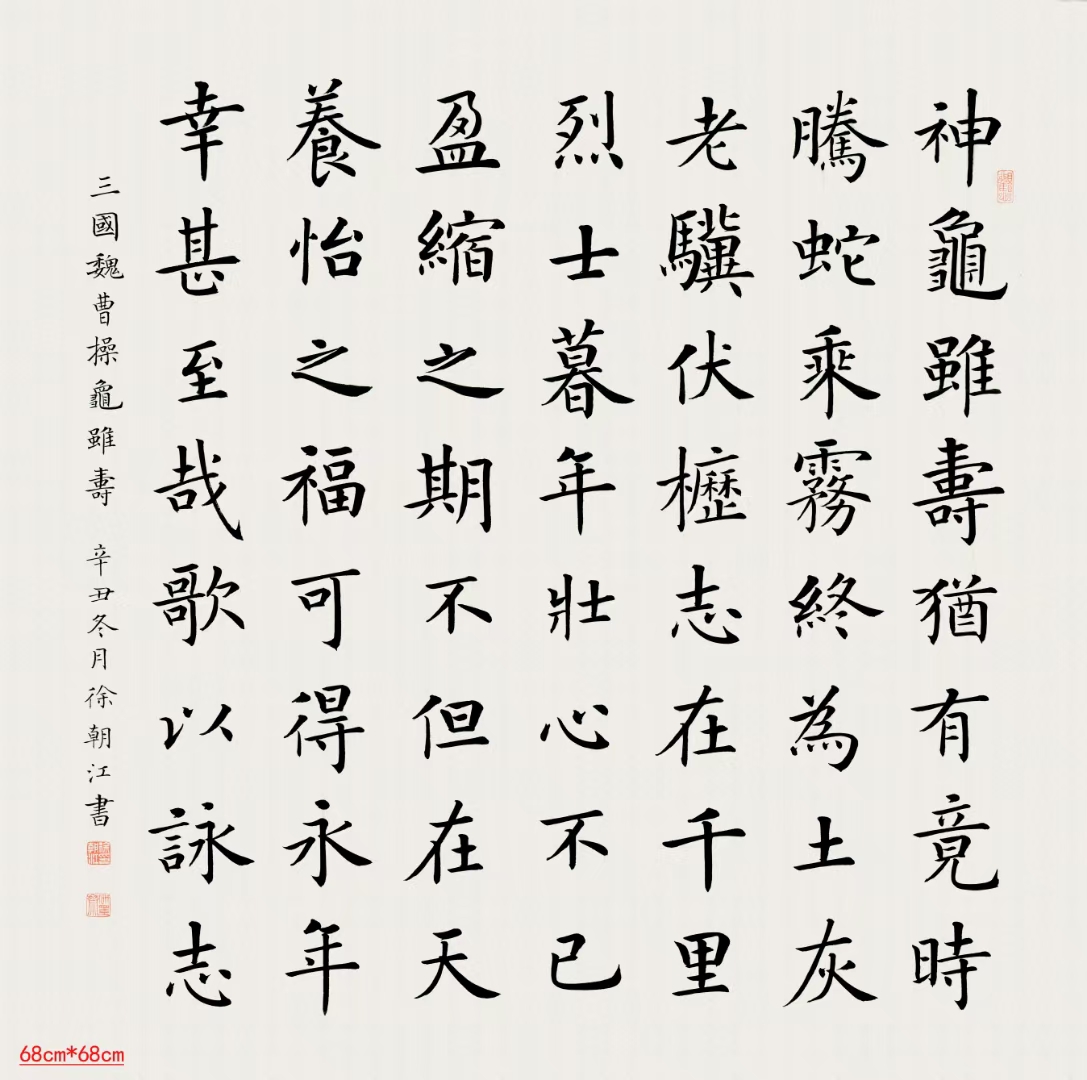 神龜雖壽猶有竟時
騰蛇乘霧終為土灰
老驥伏櫪志在千里
烈士暮年壯心不已
盈縮之期不但在天
養怡之福可得永年
幸甚至哉歌以詠志
三國魏曹操龜雖壽 辛丑冬月徐朝江書
68cm*68cm